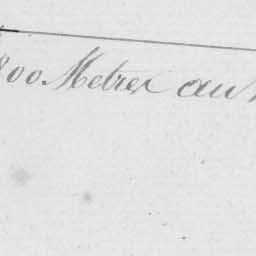 800 Metres au